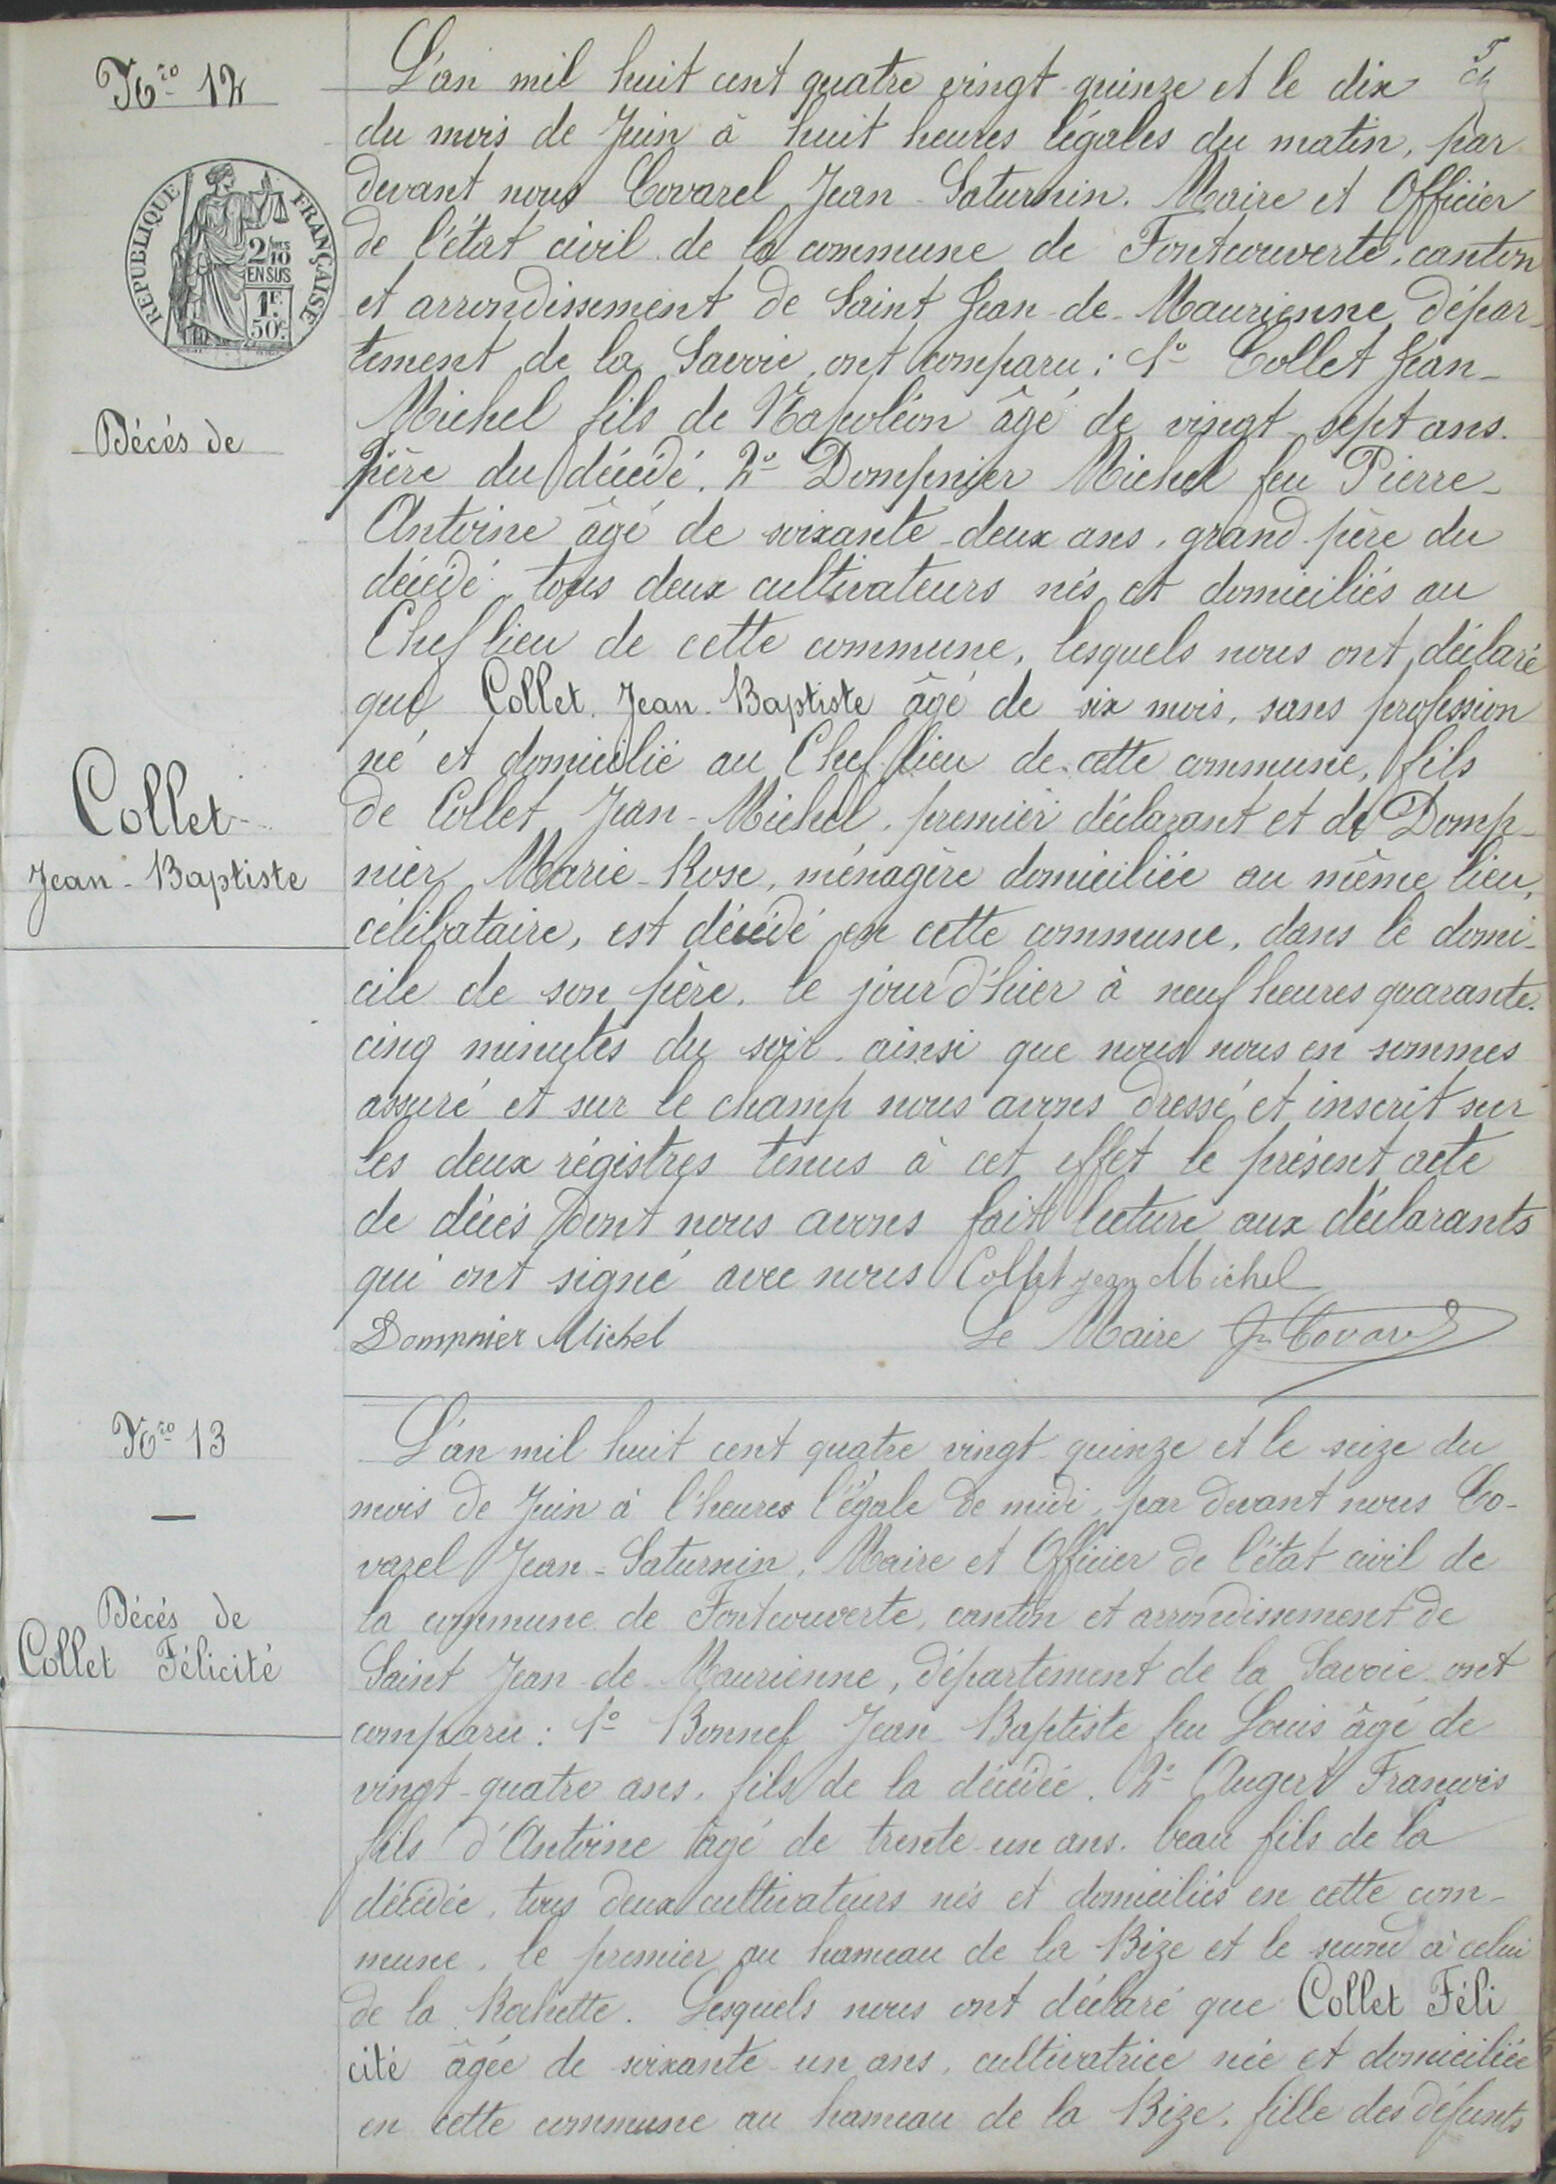 5
N.ro 12
REPUBLIQUE FRANÇAISE
2/10 EN SUS
1F. 50c.
Décès de
Collet
Jean-Baptiste
L'an mil huit cent quatre vingt-quinze et le dix
du mois de Juin à huit heures légales du matin, par
devant nous Covarel Jean-Saturnin. Maire et Officier
de l'état civil de la commune de Fontcouverte, canton
et arrondissement de Saint Jean-de-Maurienne, dépar-
tement de la Savoie, ont comparu : 1º Collet Jean-
Michel fils de Napoléon âgé de vingt-sept ans.
père du décédé. 2º Dompnier Michel feu Pierre-
Antoine âgé de soixante-deux ans, grand-père du
décédé tous deux cultivateurs nés et domiciliés au
Chef lieu de cette commune, lesquels nous ont déclaré
que Collet Jean-Baptiste âgé de six mois, sans profession
né et domicilié au Chef lieu de cette commune, fils
de Collet Jean-Michel, premier déclarant et de Domp-
nier Marie-Rose, ménagère domiciliée au même lieu,
célibataire, est décédé en cette commune, dans le domi-
cile de son père, le jour d'hier à neuf heures quarante-
cinq minutes du soir. ainsi que nous nous en sommes
assuré et sur le champ nous avons dressé et inscrit sur
les deux régistres tenus à cet effet le présent acte
de décès dont nous avons fait lecture aux déclarants
qui ont signé avec nous Collet jean Michel
Dompnier Michel Le Maire Jn Covarel
N.ro 13
Décés de
Collet Félicité
L'an mil huit cent quatre vingt quinze et le seize du
mois de Juin à l'heures l'égale de midi, par devant nous Co-
varel Jean-Saturnin, Maire et Officier de l'état civil de
la commune de Fontcouverte, canton et arrondissement de
Saint Jean-de-Maurienne, département de la Savoie ont
comparu : 1º Bonnel Jean-Baptiste feu Louis âgé de
vingt-quatre ans, fils de la décédée. 2º Augert François
fils d'Antoine âgé de trente-un ans. beau fils de la
décédée, tous deux cultivateurs nés et domiciliés en cette com-
mune, le premier au hameau de la Bize et le second à celui
de la Rochette. Lesquels nous ont déclaré que Collet Féli
cité âgée de soixante-un ans, cultivatrice née et domiciliée
en cette commune au hameau de la Bize, fille des défunts